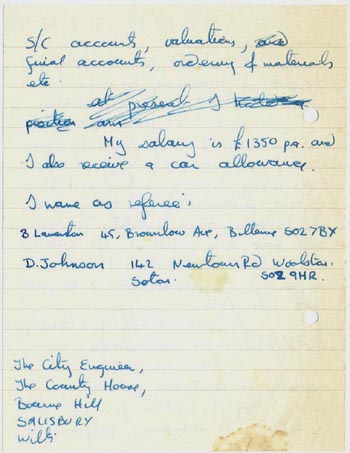 S/C accounts, valuations, and
finial accounts, ordering of materials
etc.
at present I
position am
My salary is £1350 p.a. and
I also receive a car allowance.
I name as referee's
B Lamerton 45, Brownlow Ave, Bitterne SO2 7BX
D. Johnson 142 Newtown Rd Woolston
Soton. SO2 9HR.
The City Engineer,
The County House,
Bourne Hill
SALISBURY
Wilts